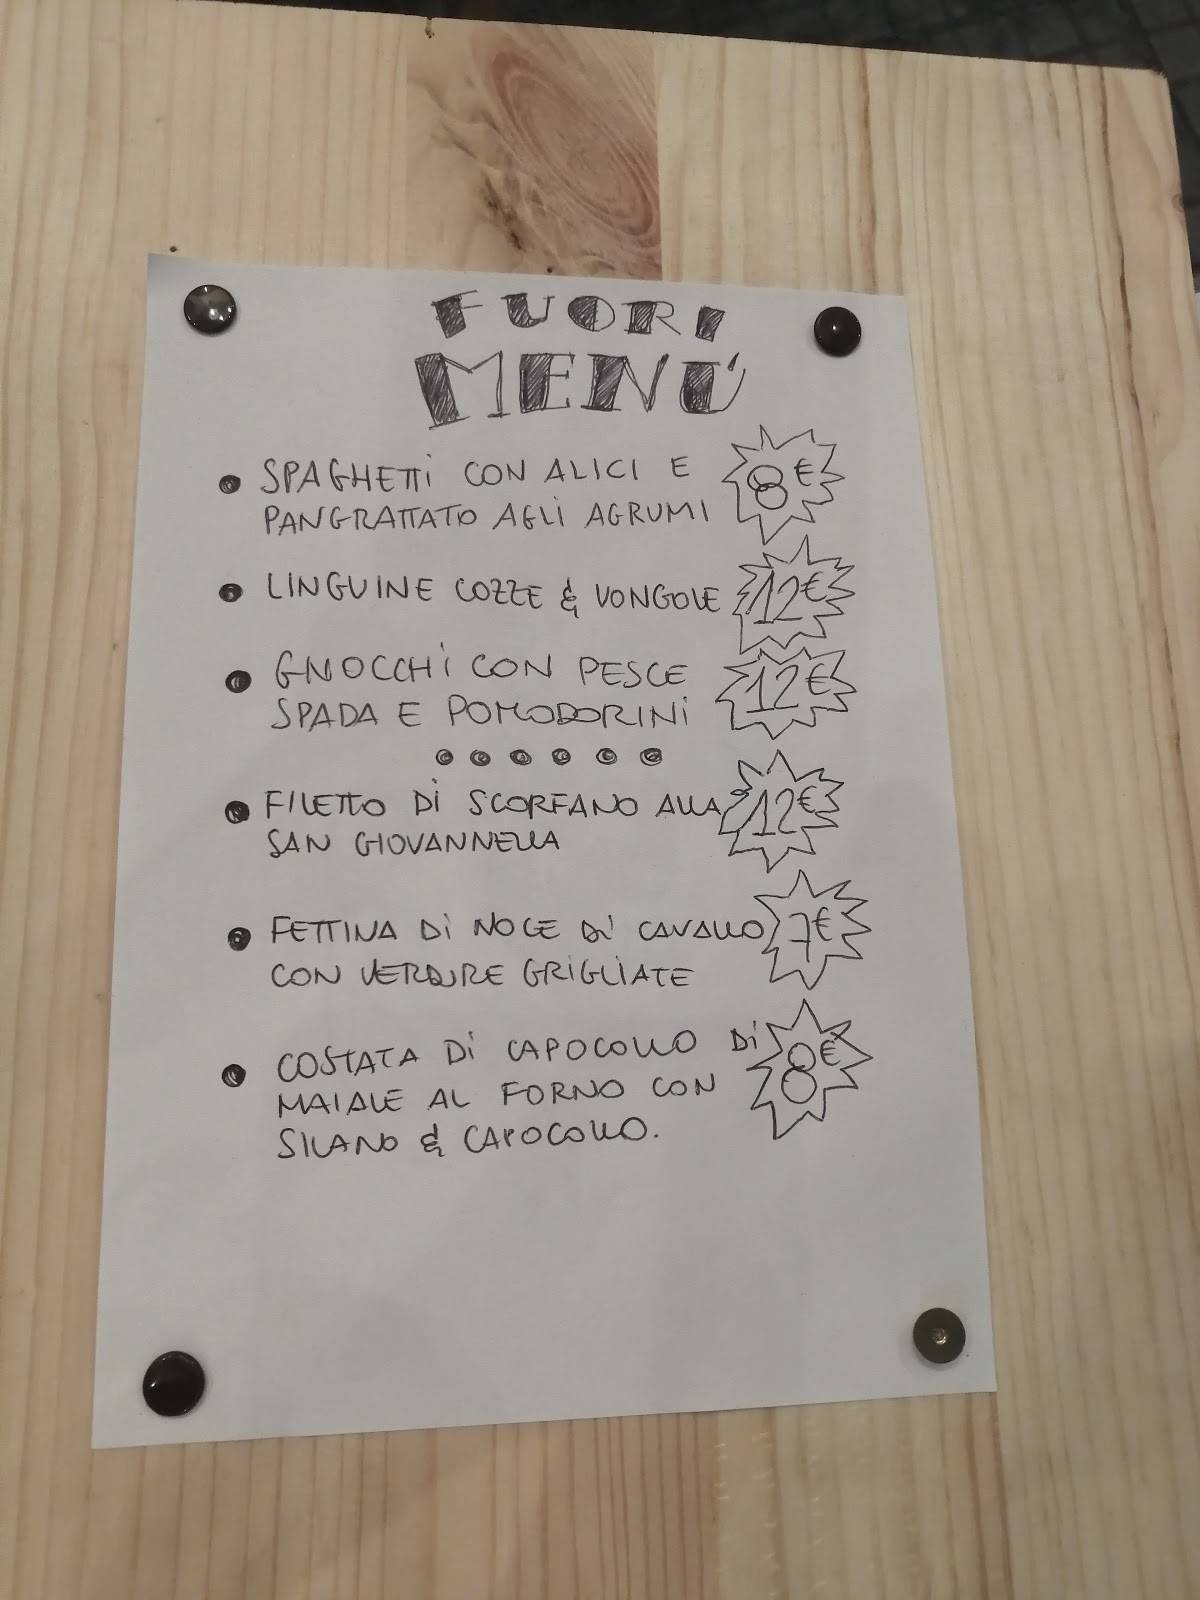 FUORI
MENÚ
SPAGHETTI CON ALICI E 8€
PANGRATTATO AGLI AGRUMI
LINGUINE COZZE & VONGOLE 12€
GNOCCHI CON PESCE 12€
SPADA E POMODORINI
FILETTO DI SCORFANO ALLA 12€
SAN GIOVANNELLA
FETTINA DI NOCE DI CAVALLO 7€
CON VERDURE GRIGLIATE
COSTATA DI CAPOCOLLO DI 8€
MAIALE AL FORNO CON
SILANO & CAPOCOLLO.